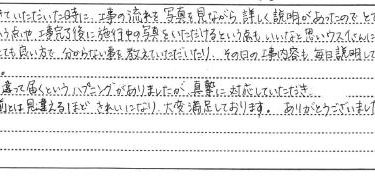 ていただいた時に、工事の流れを写真を見ながら詳しく説明があったので、とて
う点や工事完了後に施行中の写真をいただけるという点も、いいなと思いウスイさんに
とても良い方で、分からない事を教えていただいたり、その日の工事内容も毎日説明して
違って届くというハプニングがありましたが真摯に対応していただき
前とは見違えるほどきれいになり、大変満足しております。ありがとうございまし